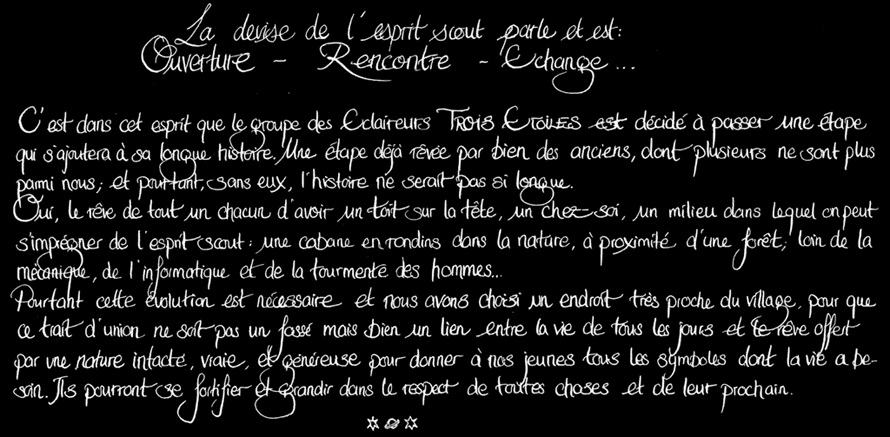 La devise de l'esprit scout parle et est:
Ouverture - Rencontre - Echange...
C'est dans cet esprit que le groupe des Eclaireurs TROIS ETOILES est décidé à passer une étape
qui s'ajoutera à sa longue histoire. Une étape déjà rêvée par bien des anciens, dont plusieurs ne sont plus
parmi nous; et pourtant, sans eux, l'histoire ne serait pas si longue.
Oui, le rêve de tout un chacun d'avoir un toit sur la tête, un chez-soi, un milieu dans lequel on peut
s'imprégner de l'esprit scout: une cabane en rondins dans la nature, à proximité d'une forêt; loin de la
mécanique, de l'informatique et de la tourmente des hommes...
Pourtant cette évolution est nécessaire et nous avons choisi un endroit très proche du village, pour que
ce trait d'union ne soit pas un fossé mais bien un lien entre la vie de tous les jours et le rêve offert
par une nature intacte, vraie, et généreuse pour donner à nos jeunes tous les symboles dont la vie a be-
soin. Ils pourront se fortifier et grandir dans le respect de toutes choses et de leur prochain.